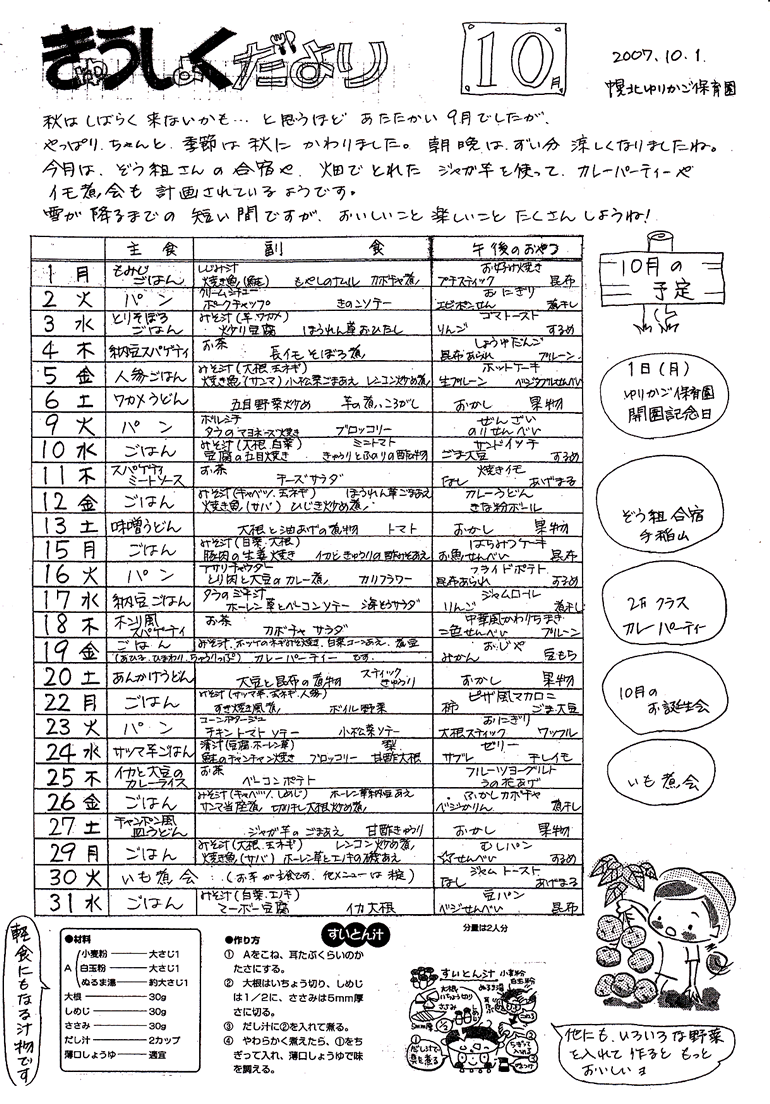 きゅうしょくだより
10月
2007.10.1.
幌北ゆりかご保育園
秋はしばらく来ないかも…と思うほど あたたかい 9月でしたが、
やっぱり、ちゃんと 季節は秋に かわりました。朝晩は、ずい分 涼しくなりましたね。
今月は、ぞう組さんの合宿や、畑でとれた ジャガ芋を使って、カレーパーティーや
イモ煮会も 計画されているようです。
雪が降るまでの 短い間ですが、おいしいこと 楽しいこと たくさんしようね!
主食 副食 午後のおやつ
1 月 もみじごはん しじみ汁 焼き魚(鮭) もやしのナムル カボチャ煮 お好み焼き プチスティック 昆布
2 火 パン クリームシチュー ポークチャップ きのこソテー おにぎり エビポンせん 煮干し
3 水 とりそぼろごはん みそ汁(芋、ワカメ) 炒り豆腐 ほうれん草おひたし ゴマトースト りんご するめ
4 木 納豆スパゲティ お茶 長イモそぼろ煮 しょうゆだんご 昆布あられ プルーン
5 金 人参ごはん みそ汁(大根、玉ネギ) 焼き魚(サンマ) 小松菜ごまあえ レンコン炒め煮 ホットケーキ 生プルーン ベジタブルせんべい
6 土 ワカメうどん 五目野菜炒め 芋の煮ころがし おかし 果物
9 火 パン ボルシチ タラのマヨネーズ焼き ブロッコリー ぜんざい のりせんべい
10 水 ごはん みそ汁(大根、白菜) ミニトマト 豆腐の五目焼き きゅうりとふのりの酢の物 サンドイッチ ごま大豆 するめ
11 木 スパゲティミートソース お茶 チーズサラダ 焼きイモ なし あげまる
12 金 ごはん みそ汁(キャベツ、玉ネギ) ほうれん草ごまあえ 焼き魚(サバ) ひじき炒め煮 カレーうどん きな粉ボール
13 土 味噌うどん 大根と油あげの煮物 トマト おかし 果物
15 月 ごはん みそ汁(白菜、大根) 豚肉の生姜焼き イカときゅうりの酢みそあえ はちみつケーキ お魚せんべい 昆布
16 火 パン アサリチャウダー とり肉と大豆のカレー煮 カリフラワー フライドポテト 昆布あられ するめ
17 水 納豆ごはん タラの三平汁 ホーレン草とベーコンソテー 海そうサラダ ジャムロール りんご 煮干し
18 木 ボンゴレ風スパゲティ お茶 カボチャサラダ 中華風かわりちまき 二色せんべい プルーン
19 金 ごはん みそ汁、ホッケのネギみそ焼き、白菜コーンあえ、煮豆 おじや みかん 豆もち
(あひる、ひまわり、ちゅうりっぷ) カレーパーティー です。
20 土 あんかけうどん 大豆と昆布の煮物 スティックきゅうり おかし 果物
22 月 ごはん みそ汁(サツマ芋、玉ネギ、人参) すき焼き風煮 ボイル野菜 ピザ風マカロニ 柿 ごま大豆
23 火 パン コーンポタージュ チキントマトソテー 小松菜ソテー おにぎり 大根スティック ワッフル
24 水 サツマ芋ごはん 清汁(豆腐、ホーレン草) 梨 鮭のチャンチャン焼き ブロッコリー 甘酢大根 ゼリー サブレ 干しイモ
25 木 イカと大豆のカレーライス お茶 ベーコンポテト フルーツヨーグルト うの花あげ
26 金 ごはん みそ汁(キャベツ、しめじ) ホーレン草納豆あえ サンマ当座煮 切り干し大根炒め煮 ふかしカボチャ ベジかりん 煮干し
27 土 チャンポン風皿うどん ジャガ芋のごまあえ 甘酢きゅうり おかし 果物
29 月 ごはん みそ汁(大根、玉ネギ) レンコン炒め煮 焼き魚(サバ) ホーレン草とエノキの磯あえ むしパン ☆せんべい するめ
30 火 いも煮会:(お芋が主食です。他メニューは 後) ジャムトースト なし あげまる
31 水 ごはん みそ汁(白菜、エノキ) マーボー豆腐 イカ大根 豆パン ベジせんべい 昆布
10月の予定
1日(月)
ゆりかご保育園
開園記念日
ぞう組合宿
手稲山
2才クラス
カレーパーティー
10月の
お誕生会
いも煮会
軽食にもなる汁物です
すいとん汁
分量は2人分
●材料
A
小麦粉 大さじ1
白玉粉 大さじ1
ぬるま湯 約大さじ1
大根 30g
しめじ 30g
ささみ 30g
だし汁 2カップ
薄口しょうゆ 適宜
●作り方
① Aをこね、耳たぶくらいのか
たさにする。
② 大根はいちょう切り、しめじ
は1/2に、ささみは5mm厚
さに切る。
③ だし汁に②を入れて煮る。
④ やわらかく煮えたら、①をち
ぎって入れ、薄口しょうゆで味
を調える。
すいとん汁
小麦粉
白玉粉
ぬるま湯
大根
いちょう切り
ささみ
5mm厚
他にも、いろいろな野菜
を入れて作ると もっと
おいしいヨ